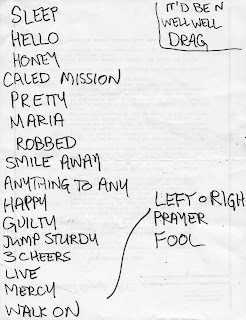 SLEEP
HELLO
HONEY
CALED MISSION
PRETTY
MARIA
ROBBED
SMILE AWAY
ANYTHING TO ANY
HAPPY
GUILTY
JUMP STURDY
3 CHEERS
LIVE
MERCY
WALK ON
IT'D BE N
WELL WELL
DRAG
LEFT O RIGH
PRAYER
FOOL